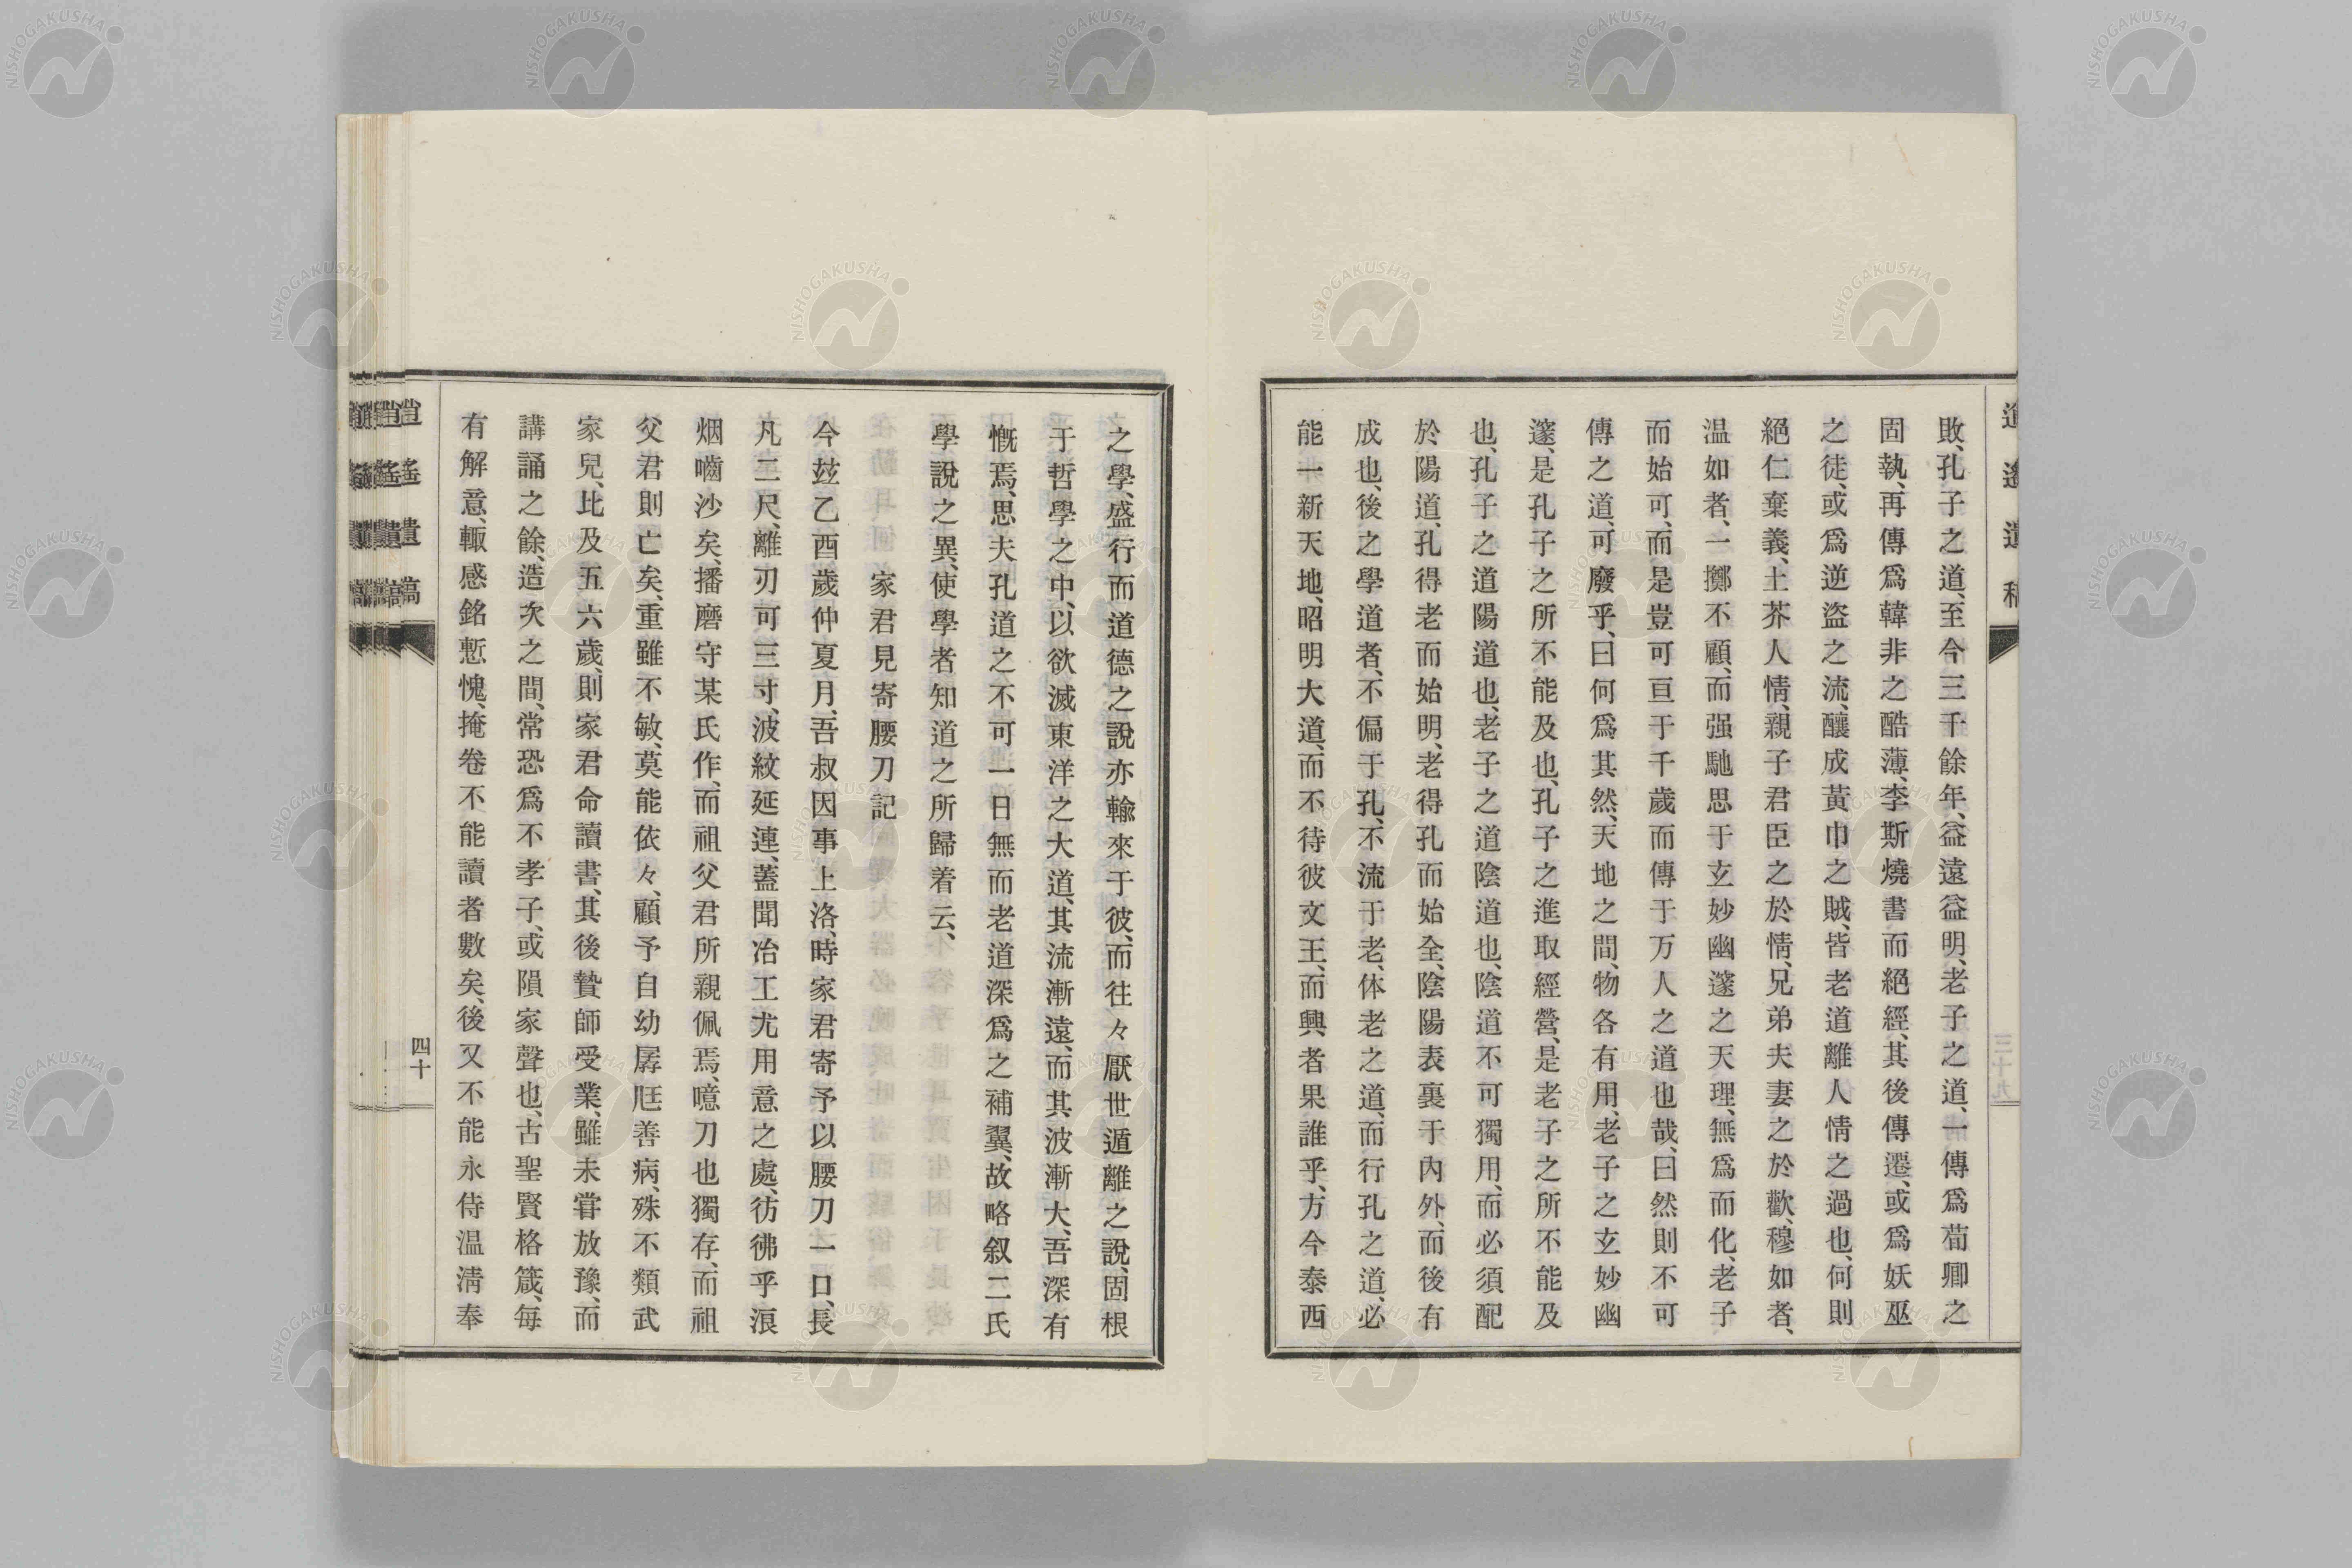 敗、孔子之道、至今三千餘年、益遠益明、老子之道、一傳爲荀卿之
固執、再傳爲韓非之酷薄、李斯燒書、而絕經、其後傳遷、或爲妖巫
之徒、或爲逆盜之流、釀成黃巾之賊、皆老道離人情之過也、何則
絕仁棄義、土芥人情、親子君臣之於情、兄弟夫妻之於歡、穆如者、
温如者、一擲不顧、而强馳思于玄妙幽邃之天理、無爲而化、老子
而始可、而是豈可亘于千歲而傳于万人之道也哉、曰然則不可
傳之道、可廢乎、曰何爲其然、天地之間、物各有用、老子之玄妙幽
邃、是孔子之所不能及也、孔子之進取經營、是老子之所不能及
也、孔子之道陽道也、老子之道陰道也、陰道不可獨用、而必須配
於陽道、孔得老而始明、老得孔而始全、陰陽表裏于內外、而後有
成也、後之學道者、不偏于孔、不流于老、体老之道、而行孔之道、必
能一新天地、昭明大道、而不待彼文王、而興者果誰乎、方今泰西
之學、盛行而道德之說亦輸來于彼、而往々厭世遁離之說、固根
于哲學之中、以欲滅東洋之大道、其流漸遠、而其波漸大、吾深有
慨焉、思夫孔道之不可一日無而老道深爲之補翼、故略叙二氏
學說之異、使學者知道之所歸着云、
家君見寄腰刀記
今玆乙酉歲仲夏月、吾叔因事上洛、時家君寄予以腰刀一口、長
凡二尺、離刃可三寸、波紋延連、蓋聞冶工尤用意之處、彷彿乎浪
烟嚙沙矣、播磨守某氏作、而祖父君所親佩焉、噫刀也獨存、而祖
父君則亡矣、重雖不敏、莫能依々、顧予自幼孱尫善病、殊不類武
家兒、比及五六歲、則家君命讀書、其後贄師受業、雖未甞放豫、而
講誦之餘、造次之間、常恐爲不孝子、或隕家聲也、古聖賢格箴、每
有解意、輙感銘慙愧、掩卷不能讀者數矣、後又不能永侍温凊奉
逍遙遺稿
四十